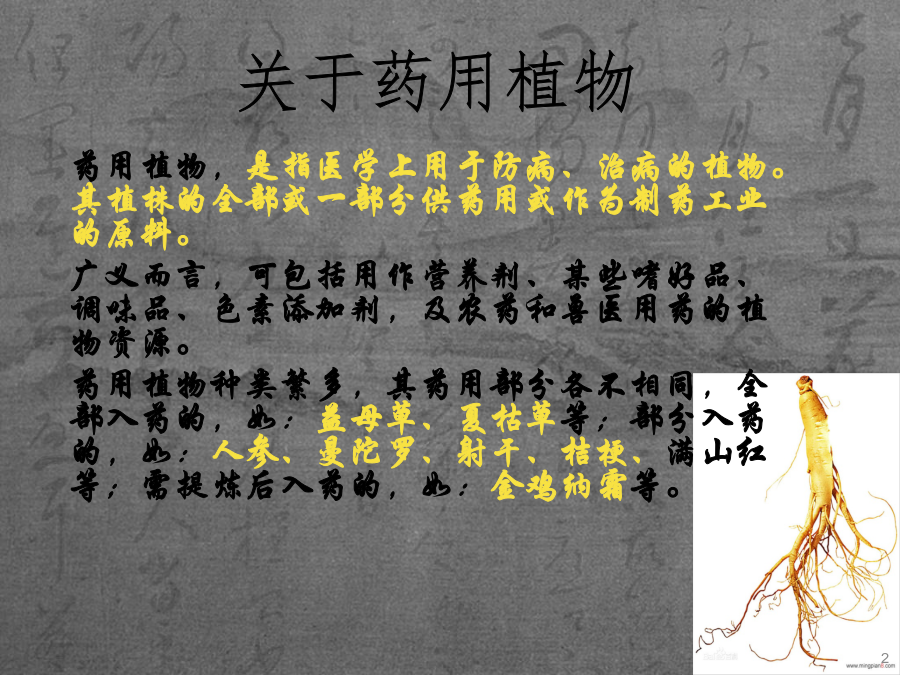 关于药用植物
药用植物，是指医学上用于防病、治病的植物。
其植株的全部或一部分供药用或作为制药工业
的原料。
广义而言，可包括用作营养剂、某些嗜好品、
调味品、色素添加剂，及农药和兽医用药的植
物资源。
药用植物种类繁多，其药用部分各不相同，全
部入药的，如：益母草、夏枯草等；部分入药
的，如：人参、曼陀罗、射干、桔梗、满山红
等；需提炼后入药的，如：金鸡纳霜等。
2